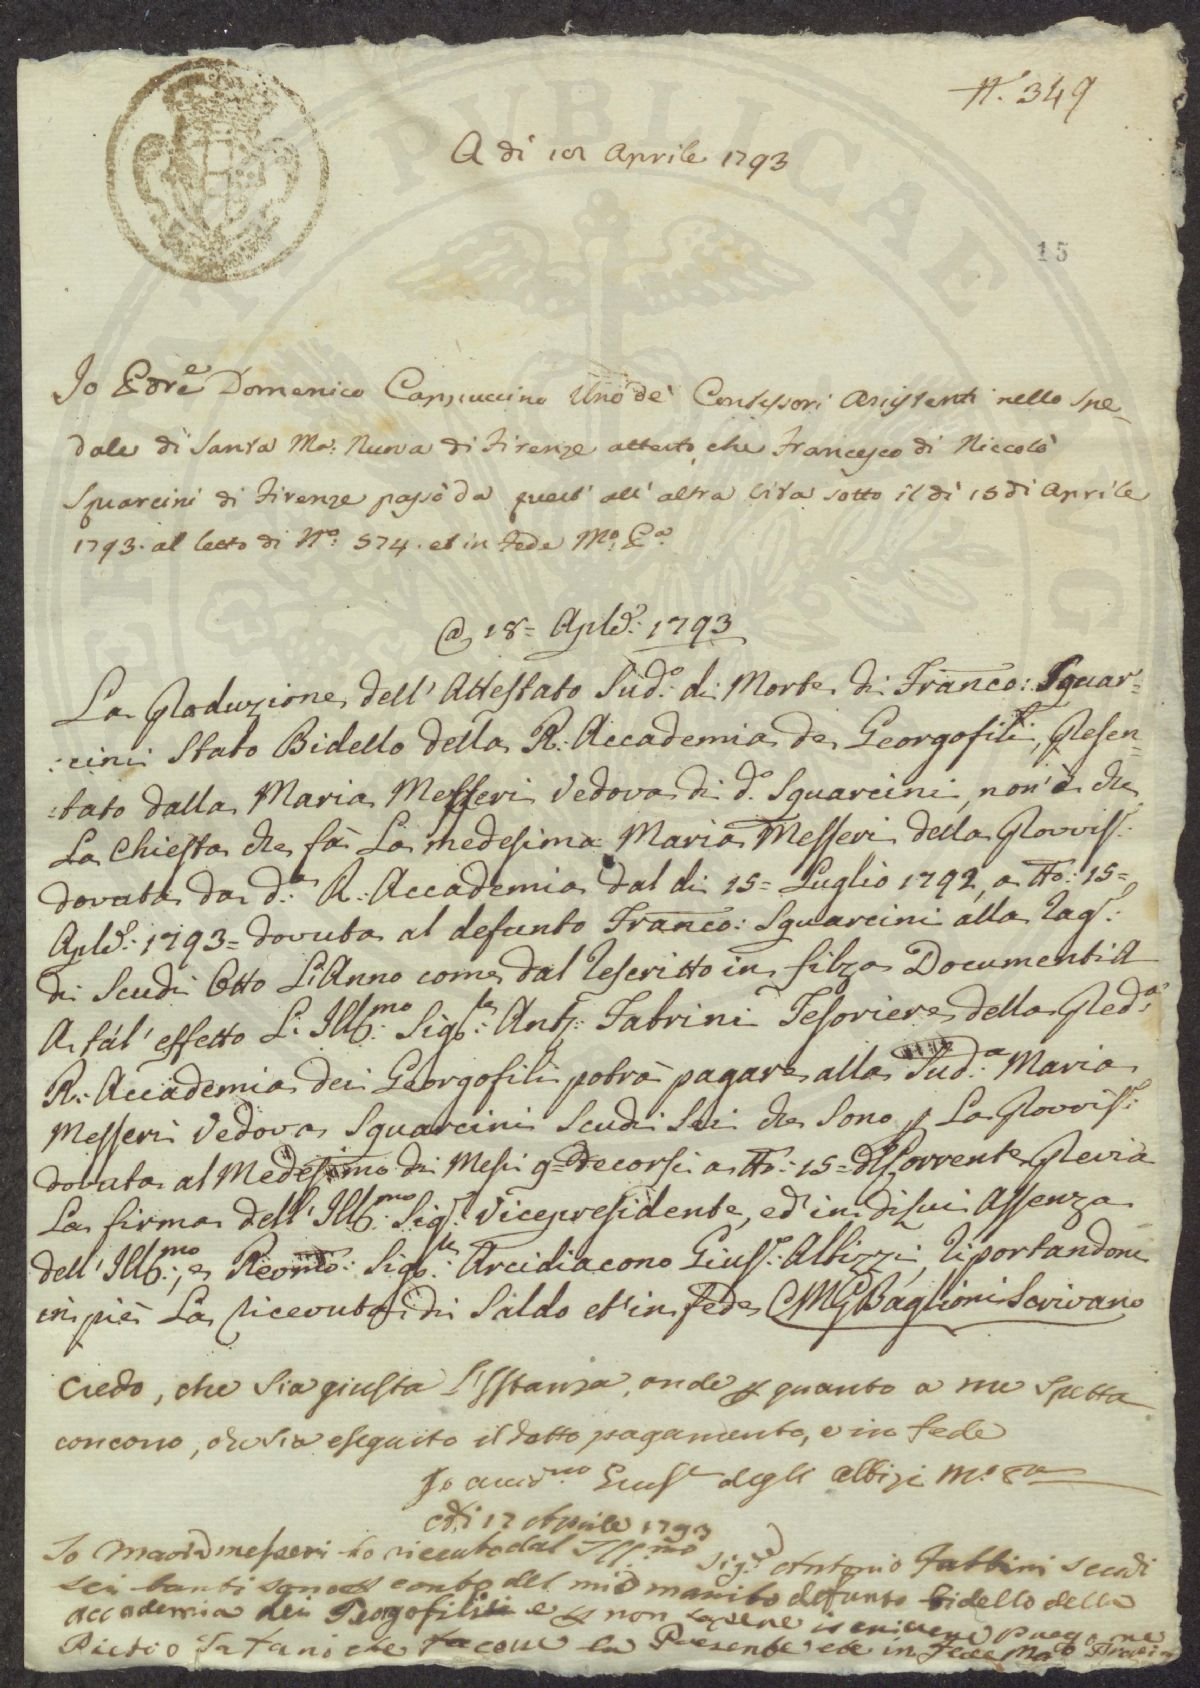 N.° 349
A dì 18 Aprile 1793
15
Io Fdre Domenico Cappuccino Uno de' Confessori Assistenti nello Spe-
dale di Santa Ma: Nuova di Firenze attesto, che Francesco di Niccolò
Squarcini di Firenze passò da questa all' altra Vita sotto il dì 15 di Aprile
1793. al letto di N.° 574. et in fede M.° P.ª
@ 18= Aple: 1793
La Produzione dell' Attestato Sud.° di Morte di Franco: Squar=
:cini Stato Bidello della R: Accademia de Georgofili, Presen=
:tato dalla Maria Messeri Vedova di d.° Squarcini, non è che
La Chiesta che fà La medesima Maria Messeri della Provvis:
dovuta da d.ª R: Accademia dal di 15= Luglio 1792, a tto: 15=
Aple: 1793= dovuta al defunto Franco: Squarcini alla rag:
di Scudi Otto L'Anno come dal Rescritto in filza Documenti A
A tal' effetto L' Ill.mo Sig.re Ant.° Fabrini Tesoriere della Pred.ª
R: Accademia dei Georgofili potrà pagare alla Sud.ª Maria
Messeri Vedova Squarcini Scudi Sei che Sono p La Provvis:
dovuta al Medesimo di Mesi 9= decorsi a tto: 15= del Corrente Previa
La firma dell' Ill.mo Sig.r Vicepresidente, ed' in di lui Assenza
dell' Ill.mo, e Revmo: Sig.re Arcidiacono Gius.e Albizzi, riportandone
in piè La ricevuta di Saldo et' in fede CMGBaglioni Scrivano
Credo, che sia giusta l'Istanza, onde p quanto a me spetta
concorro, che sia eseguito il detto pagamento, e in fede
Io Arcid.no Gius.e degli Albizi M.° P.ª
Adì 17 Aprile 1793
Io Maria messeri ho ricevuto dal Ill.mo Sig.re Antonio Fabbrini scudi
sei tanti sono p conto del mio marito defunto bidello della
accademia dei Georgofili e p non sapere iscrivere prego me
Pietro Satani che facose la Presente che in Fede Ma°